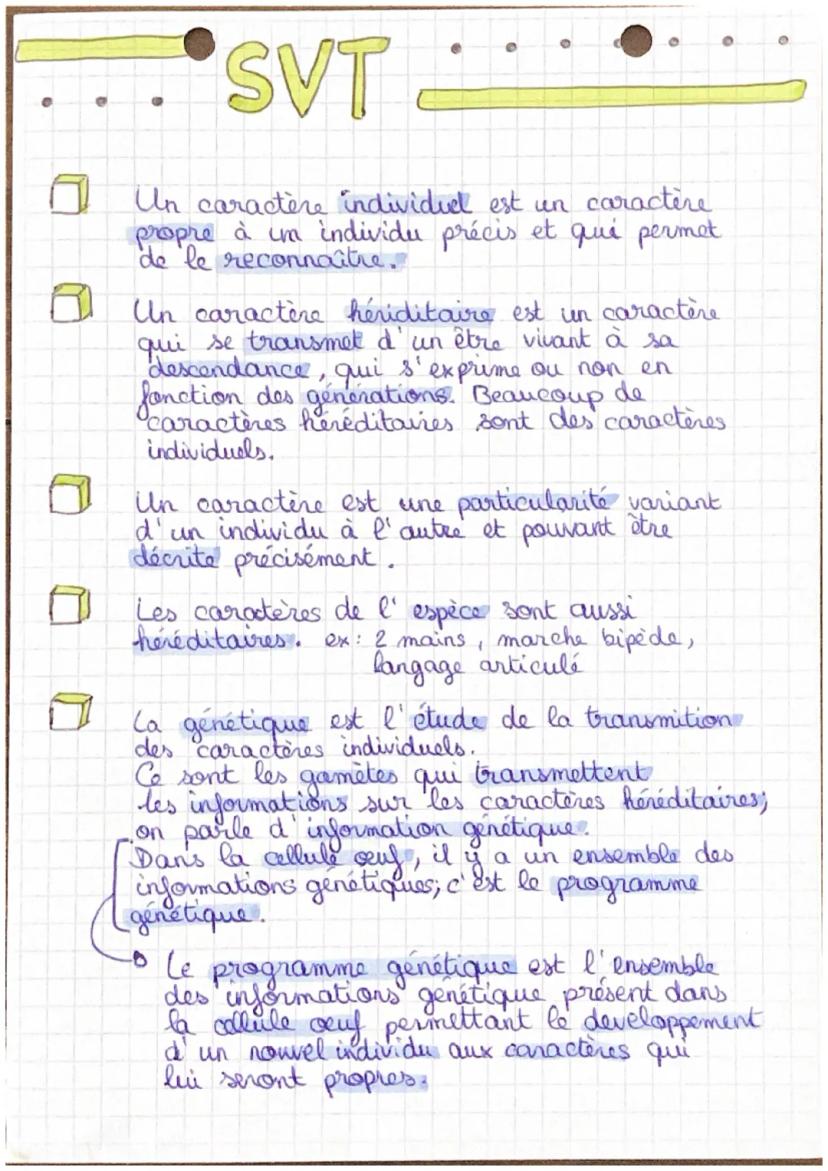 SVT
Un caractère individuel est un caractère
propre à un individu précis et qui permet
de le reconnaître.
Un caractère hériditaire est un caractère
qui se transmet d'un être vivant à sa
descendance, qui s'exprime ou non en
fonction des générations. Beaucoup de
caractères héréditaires sont des caractères
individuels.
Un caractère est une particularité variant
d'un individu à l'autre et pouvant être
décrite précisément.
Les caractères de l'espèce sont aussi
héréditaires. ex: 2 mains, marche bipède,
langage articulé
La génétique est l'étude de la transmition
des caractères individuels.
Ce sont les gamètes qui transmettent
les informations sur les caractères héréditaires;
on parle d'information génétique.
Dans la cellule oeuf, il y a un ensemble des
informations génétiques; c'est le programme
génétique.
Le programme génétique est l'ensemble
des informations génétique présent dans
la cellule oeuf permettant le developpement
d'un nouvel individu aux caractères qui
lui seront propres.